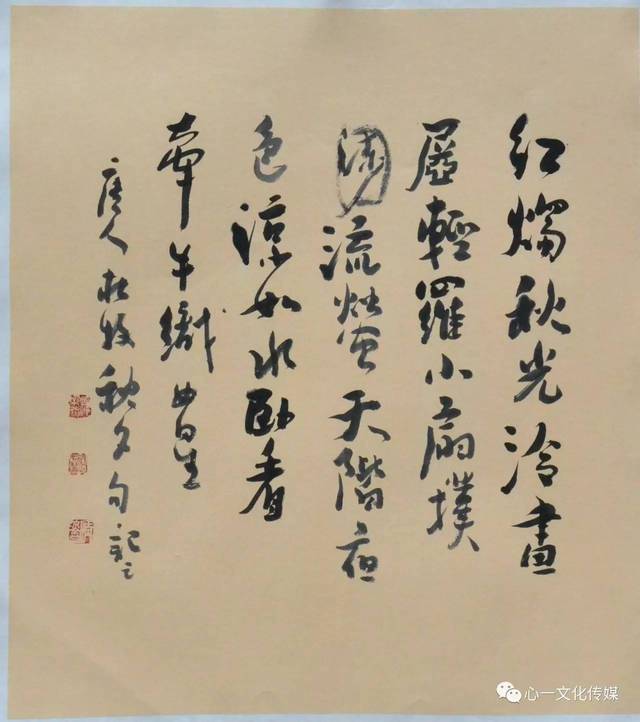 紅燭秋光冷畫
屏輕羅小扇撲
流螢天階夜
色涼如水臥看
牽牛織女星
唐人杜牧秋夕句記之
心一文化传媒